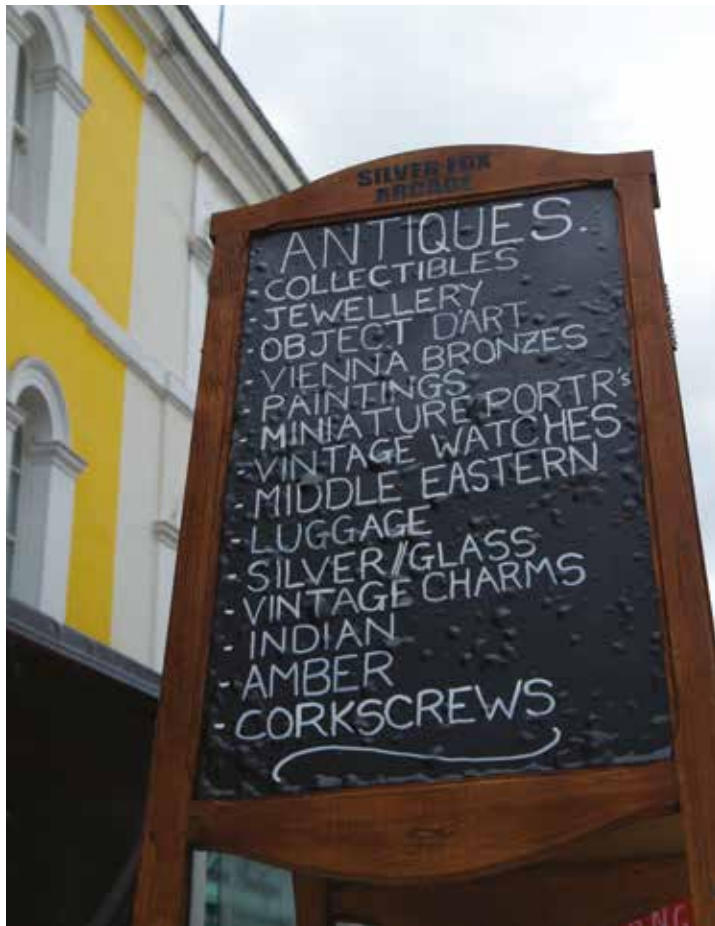 SILVER FOX
ARCADE
ANTIQUES.
- COLLECTIBLES
- JEWELLERY
- OBJECT D'ART
- VIENNA BRONZES
- PAINTINGS
- MINIATURE PORTR's
- VINTAGE WATCHES
- MIDDLE EASTERN
- LUGGAGE
- SILVER//GLASS
- VINTAGE CHARMS
- INDIAN
- AMBER
- CORKSCREWS